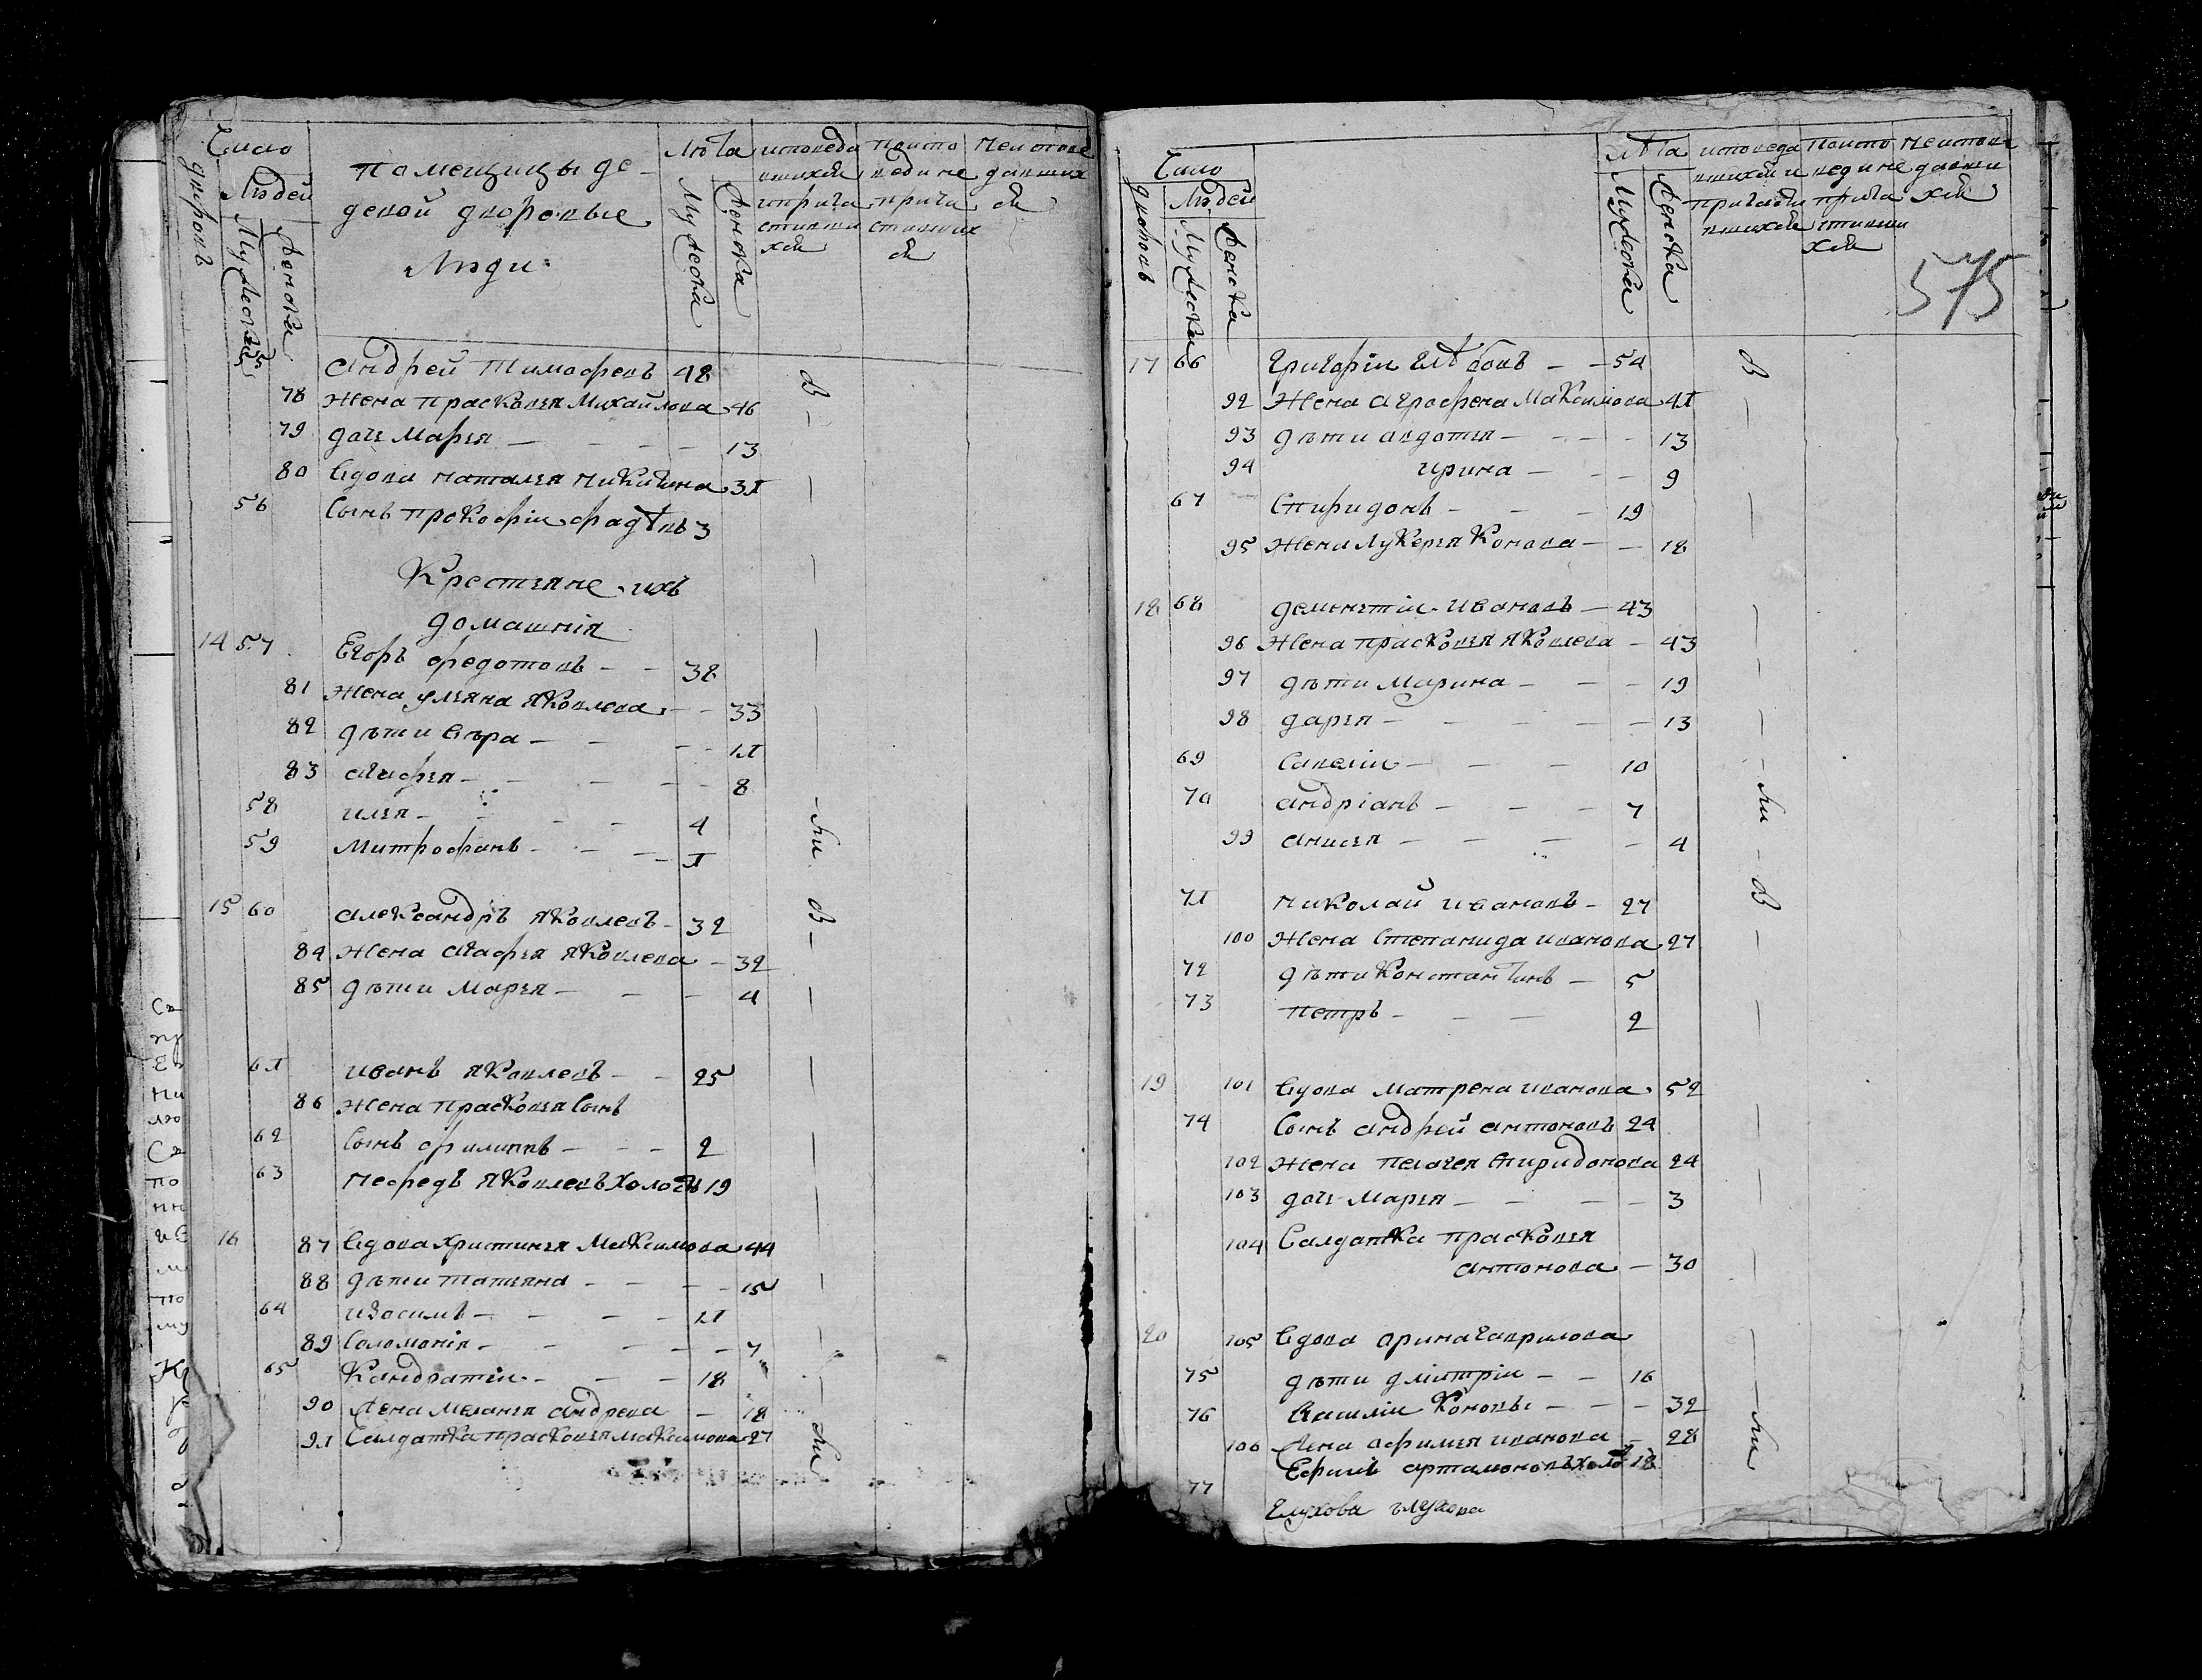 Число
дворовъ
Людей
Мужеска
Женска
помещицы де
девой дворовые
Люди
Лѣта
Мужеска
Женска
исповеда
вшихся
и прича
стивши
хся
по испо
веди не
прича
стивших
ся
не испове
давших
ся
55 Андрей Тимофеевъ 48
78 жена прасковья Михайлова 46
79 дочь Марья 13
80 вдова наталья никитина 31
56 Сынъ прокофіи фадѣевъ 3
Крестьяне ихъ
домашнія
14 57 Егоръ федотовъ 38
81 жена ульяна яковлева 33
82 дѣти вѣра 11
83 агафья 8
58 илья 4
59 Митрофанъ 1
15 60 александръ яковлевъ 32
84 жена агафья яковлева 32
85 дѣти марья 4
61 иванъ яковлевъ 25
86 жена прасковья
62 Сынъ филиппъ 2
63 нефедъ яковлевъ холостъ 19
16 87 вдова христинья Максимова 44
88 дѣти татьяна 15
64 изосимъ 11
89 Соломонія 7
65 Кандратіи 18
90 жена меланья андрева 18
91 Салдатка прасковья максимова 27
бы
ли
бы
ли
Число
дворовъ
Людей
Мужеска
Женска
лѣта
Мужеска
Женска
исповеда
вшихся и
причасти
вшихся
по испо
веди не
прича
стивши
хся
не испове
давши
хся
575
17 66 Григоріи глѣбовъ 54
92 жена агрофена Максимова 41
93 дѣти авдотья 13
94 ирина 9
67 Спиридонъ 19
95 жена лукерья Конова 18
18 68 дементіи ивановъ 43
96 жена прасковья яковлева 43
97 дѣти марина 19
98 дарья 13
69 Савеліи 10
70 андріанъ 7
99 анисья 4
71 николай ивановъ 27
100 жена Степанида иванова 27
72 дѣти Константинъ 5
73 петръ 2
19 101 вдова матрена иванова 52
74 Сынъ андрей антоновъ 24
102 жена пелагея Спиридонова 24
103 дочь марья 3
104 Салдатка прасковья
антонова 30
20 105 вдова арина гаврилова
75 дѣти дмітріи 16
76 василіи Коновы 32
106 жена афимья иванова 28
77 Ефимъ артамоновъ холо 18
Глухова
бы
ли
бы
ли